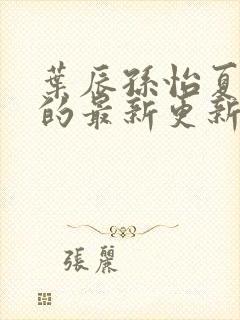 葉辰孫怡夏
的最新更新
張麗